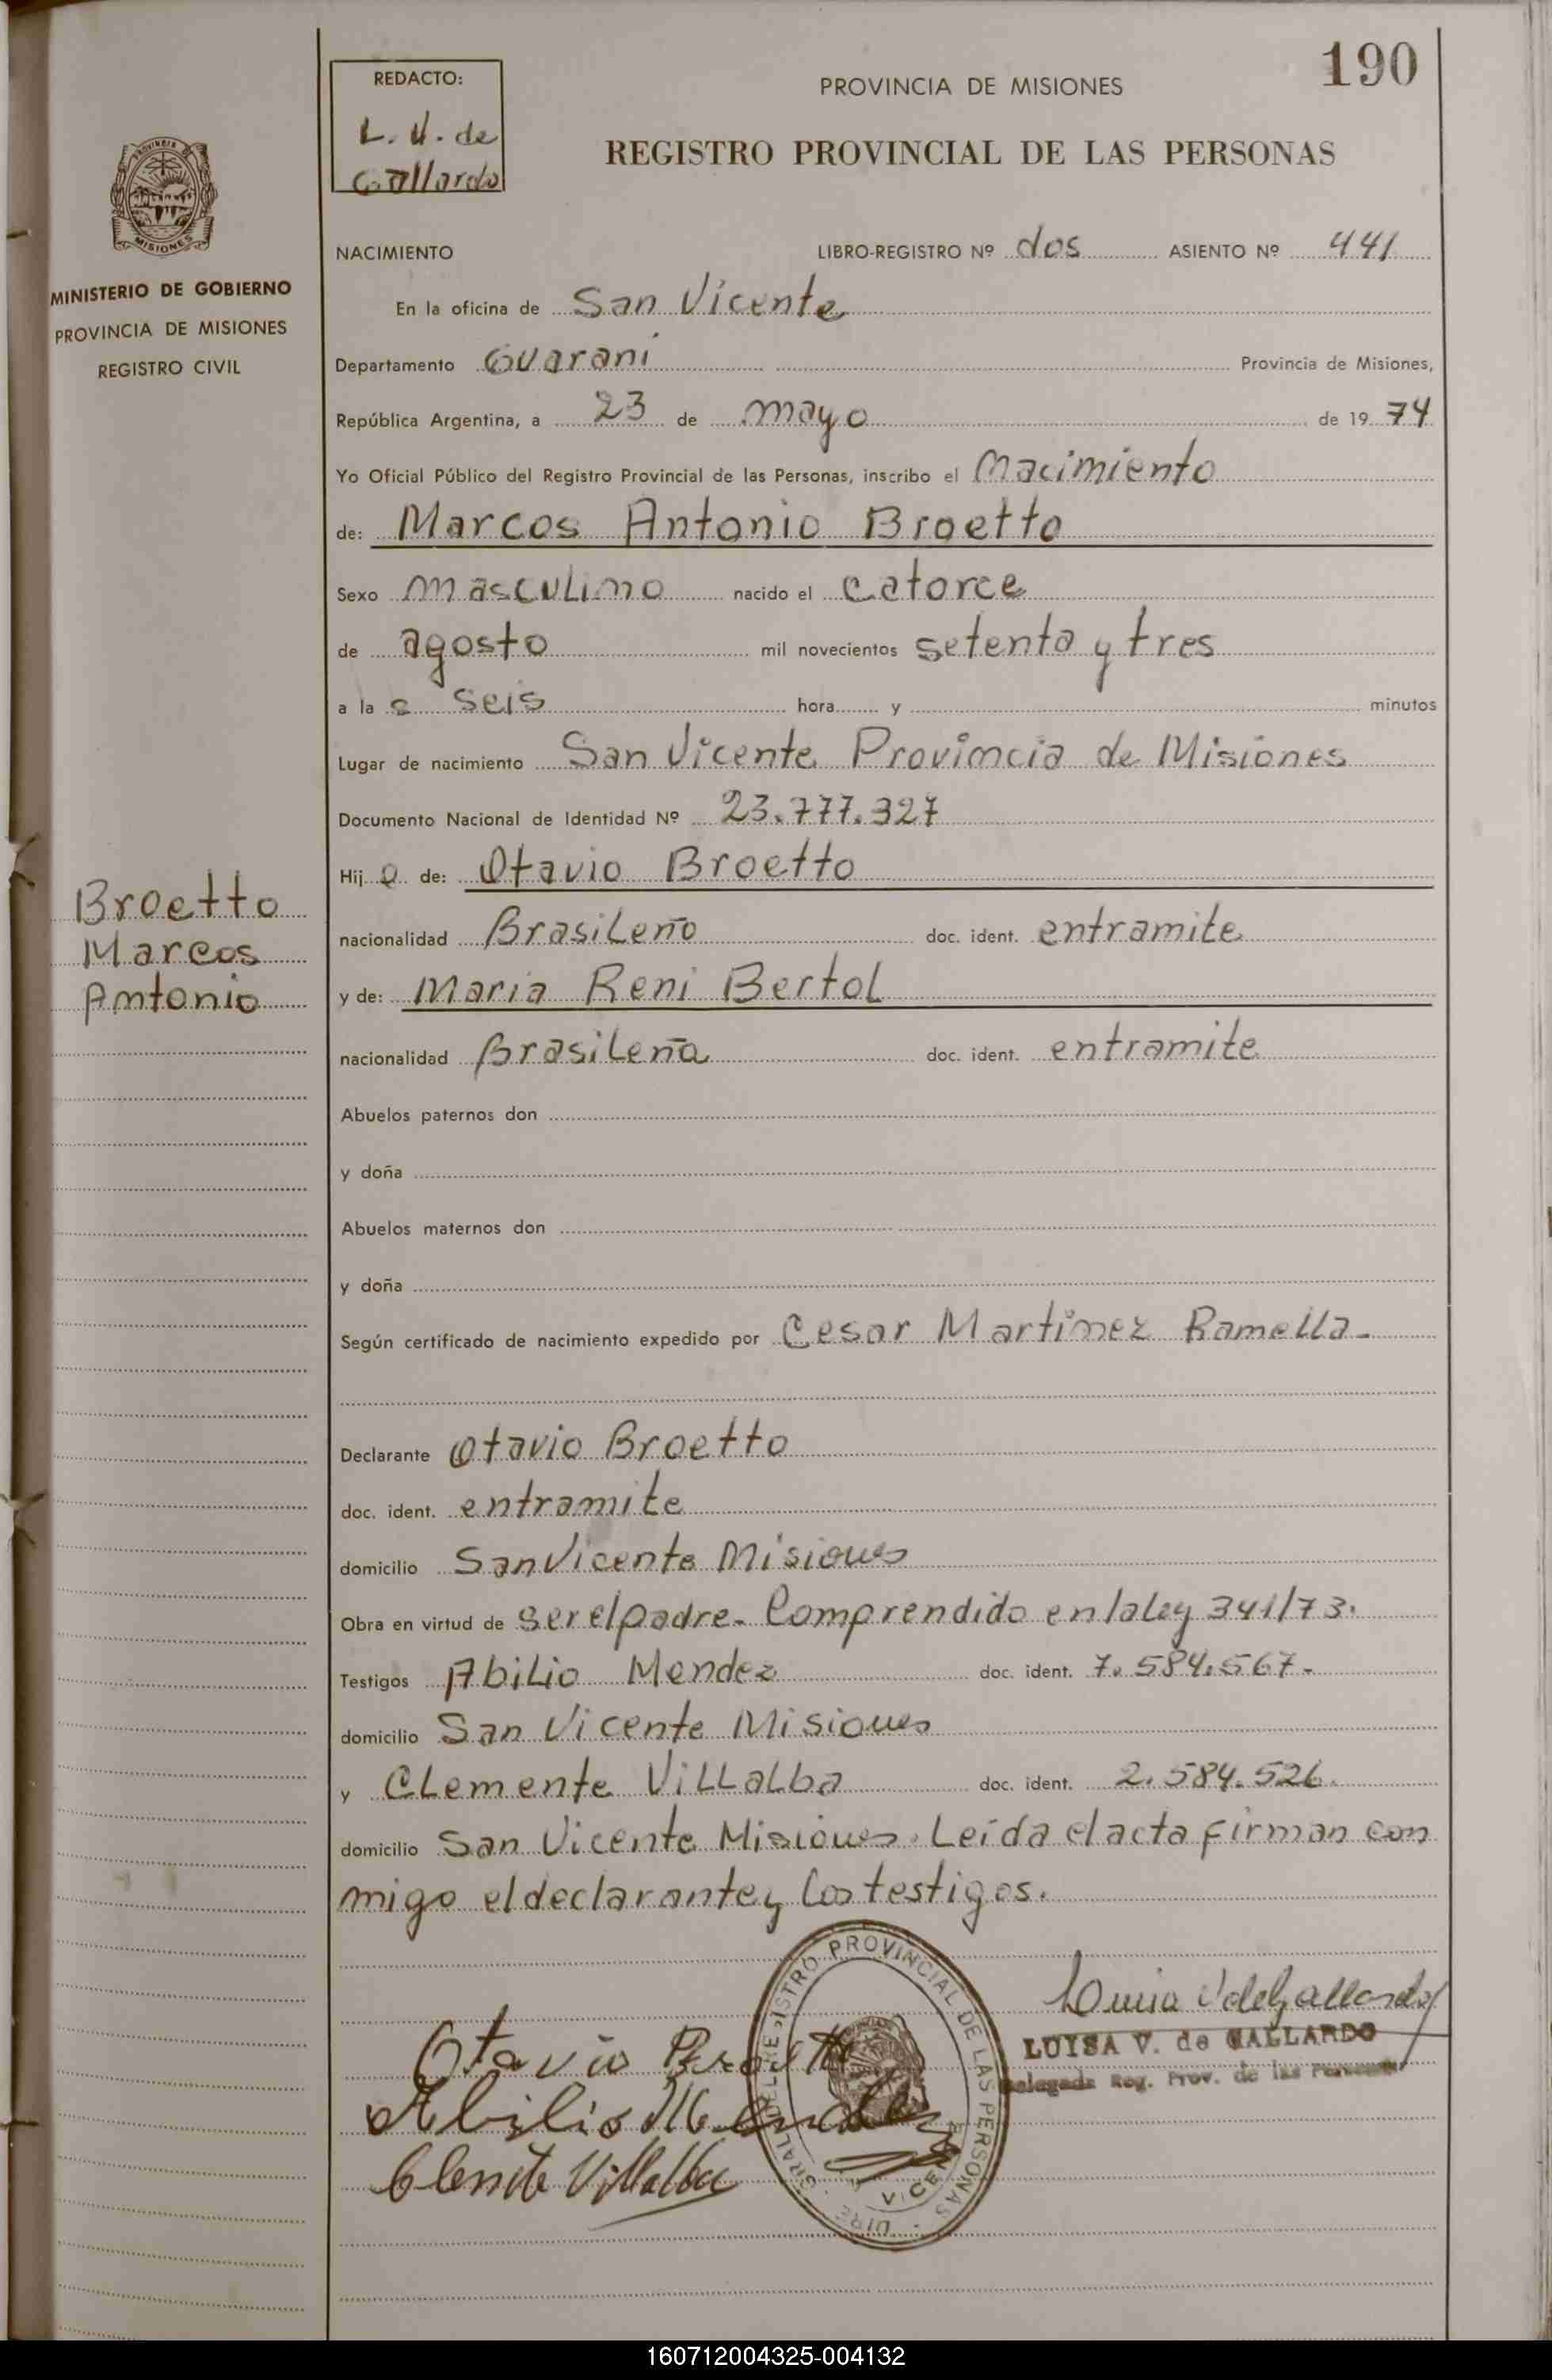 190
REDACTO:
L. V. de
Gallardo
PROVINCIA DE MISIONES
REGISTRO PROVINCIAL DE LAS PERSONAS
MISIONES
MINISTERIO DE GOBIERNO
PROVINCIA DE MISIONES
REGISTRO CIVIL
NACIMIENTO LIBRO-REGISTRO Nº dos ASIENTO Nº 441
En la oficina de San Vicente
Departamento Guarani Provincia de Misiones,
República Argentina, a 23 de mayo de 19 74
Yo Oficial Público del Registro Provincial de las Personas, inscribo el Nacimiento
de: Marcos Antonio Broetto
Sexo masculino nacido el catorce
de agosto mil novecientos setenta y tres
a la s seis hora y minutos
Lugar de nacimiento San Vicente Provincia de Misiones
Documento Nacional de Identidad Nº 23.777.327
Hij o de: Otavio Broetto
Broetto
Marcos
Antonio
nacionalidad Brasileño doc. ident. entramite
y de: Maria Reni Bertol
nacionalidad Brasileña doc. ident. entramite
Abuelos paternos don
y doña
Abuelos maternos don
y doña
Según certificado de nacimiento expedido por Cesar Martinez Ramella-
Declarante Otavio Broetto
doc. ident. entramite
domicilio San Vicente Misiones
Obra en virtud de ser el padre. Comprendido en la Ley 341/73.
Testigos Abilio Mendez doc. ident. 7.584.567.
domicilio San Vicente Misiones
y Clemente Villalba doc. ident. 2.584.526.
domicilio San Vicente Misiones. Leída el acta firman con
migo el declarante y los testigos.
Otavio Broetto
Abilio Mendez
Clemente Villalba
REGISTRO PROVINCIAL DE LAS PERSONAS
VICENTE
Luisa V de Gallardo
LUISA V. de GALLARDO
Delegada Reg. Prov. de las Personas
160712004325-004132